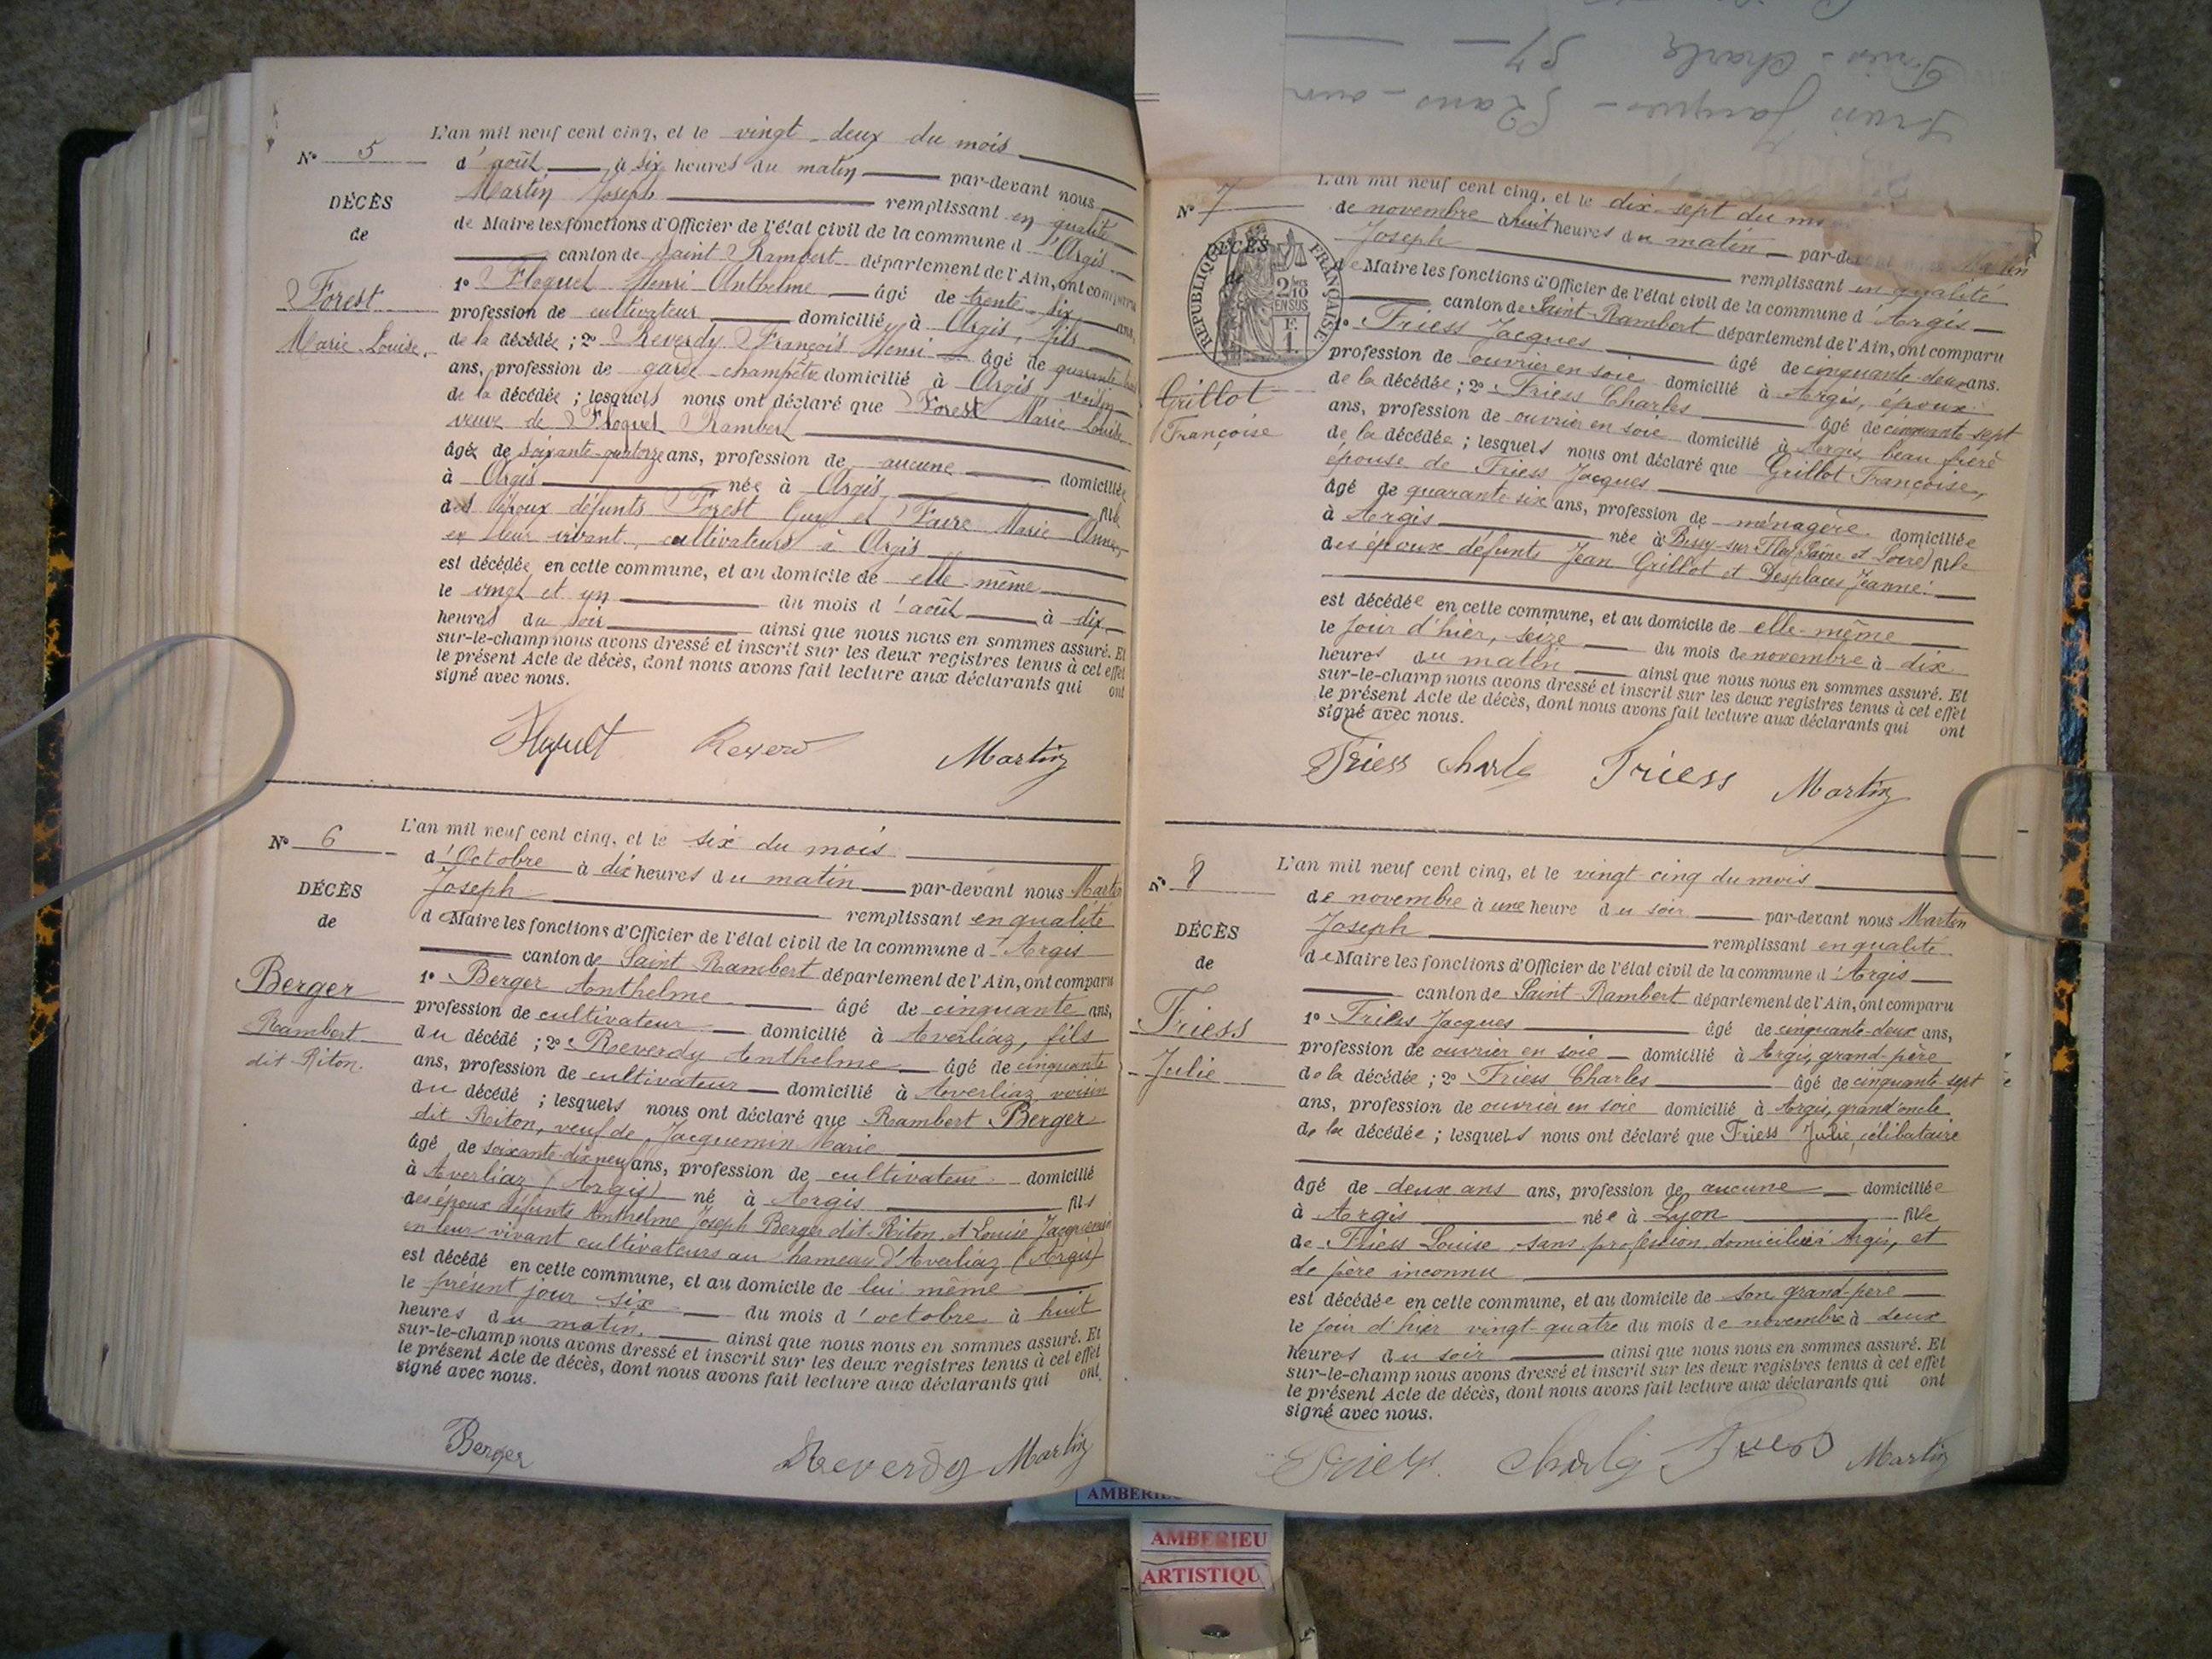 L'an mil neuf cent cinq, et le vingt-deux du mois
N° 5
d'août à six heures du matin par-devant nous
Martin Joseph remplissant en qualité
DÉCÈS
de Maire les fonctions d'Officier de l'état civil de la commune d'Argis
de
canton de Saint Rambert département de l'Ain, ont comparu
1° Floquet Henri Anthelme âgé de trente six ans,
Forest
profession de cultivateur domicilié à Argis, fils
Marie Louise.
de la décédée ; 2° Reverdy François Henri âgé de quarante
ans, profession de garde champêtre domicilié à Argis voisin
de la décédée ; lesquels nous ont déclaré que Forest Marie Louise
veuve de Floquet Rambert
âgée de soixante-quatorze ans, profession de aucune domiciliée
à Argis née à Argis, fille
des époux défunts Forest Guy et Favre Marie Anne,
en leur vivant, cultivateurs à Argis
est décédée en cette commune, et au domicile de elle-même
le vingt et un du mois d'août à dix
heures du soir ainsi que nous nous en sommes assuré. Et
sur-le-champ nous avons dressé et inscrit sur les deux registres tenus à cet effet
le présent Acte de décès, dont nous avons fait lecture aux déclarants qui ont
signé avec nous.
Martin
L'an mil neuf cent cinq, et le six du mois
N° 6
d'Octobre à dix heures du matin par-devant nous Martin
Joseph remplissant en qualité
DÉCÈS
de Maire les fonctions d'Officier de l'état civil de la commune d'Argis
de
canton de Saint Rambert département de l'Ain, ont comparu
1° Berger Anthelme âgé de cinquante ans,
Berger
profession de cultivateur domicilié à Averliaz, fils
Rambert
du décédé ; 2° Reverdy Anthelme âgé de cinquante
dit Riton.
ans, profession de cultivateur domicilié à Averliaz voisin
du décédé ; lesquels nous ont déclaré que Rambert Berger
dit Riton, veuf de Jacquemin Marie
âgé de soixante-dix neuf ans, profession de cultivateur domicilié
à Averliaz (Argis) né à Argis fils
des époux défunts Anthelme Joseph Berger dit Riton et Louise Jacquemin
en leur vivant cultivateurs au hameau d'Averliaz (Argis)
est décédé en cette commune, et au domicile de lui-même
le présent jour six du mois d'octobre à huit
heures du matin, ainsi que nous nous en sommes assuré. Et
sur-le-champ nous avons dressé et inscrit sur les deux registres tenus à cet effet
le présent Acte de décès, dont nous avons fait lecture aux déclarants qui ont
signé avec nous.
Berger Reverdy Martin
Friess Jacques - 52 ans - ouv
Friess - Charles 57 -
L'an mil neuf cent cinq, et le dix-sept du
N° 7
de novembre à huit heures du matin par-devant Martin
Joseph remplissant en qualité
DÉCÈS
RÉPUBLIQUE FRANÇAISE
2/10 EN SUS
F. 1
de Maire les fonctions d'Officier de l'état civil de la commune d'Argis
canton de Saint-Rambert département de l'Ain, ont comparu
1° Friess Jacques âgé de cinquante-deux ans.
profession de ouvrier en soie domicilié à Argis, époux
Grillot
Françoise
de la décédée ; 2° Friess Charles âgé de cinquante-sept
ans, profession de ouvrier en soie domicilié à Argis, beau frère
de la décédée ; lesquels nous ont déclaré que Grillot Françoise,
épouse de Friess Jacques
âgé de quarante six ans, profession de ménagère domiciliée
à Argis née à Bissy-sur-Fley (Saône et Loire) fille
des époux défunts Jean Grillot et Desplaces Jeanne.
est décédée en cette commune, et au domicile de elle-même
le jour d'hier, seize du mois de novembre à dix
heures du matin ainsi que nous nous en sommes assuré. Et
sur-le-champ nous avons dressé et inscrit sur les deux registres tenus à cet effet
le présent Acte de décès, dont nous avons fait lecture aux déclarants qui ont
signé avec nous.
Friess Charle Friess Martin
L'an mil neuf cent cinq, et le vingt-cinq du mois
N° 8
de novembre à une heure du soir par-devant nous Martin
Joseph remplissant en qualité
DÉCÈS
de Maire les fonctions d'Officier de l'état civil de la commune d'Argis
de
canton de Saint-Rambert département de l'Ain, ont comparu
1° Friess Jacques âgé de cinquante-deux ans,
Friess
profession de ouvrier en soie domicilié à Argis, grand-père
Julie
de la décédée ; 2° Friess Charles âgé de cinquante-sept
ans, profession de ouvrier en soie domicilié à Argis, grand'oncle
de la décédée ; lesquels nous ont déclaré que Friess Julie, célibataire
âgé de deux ans ans, profession de aucune domiciliée
à Argis née à Lyon fille
de Friess Louise, sans profession, domiciliée à Argis, et
de père inconnu
est décédée en cette commune, et au domicile de son grand-père
le jour d'hier vingt-quatre du mois de novembre à deux
heures du soir ainsi que nous nous en sommes assuré. Et
sur-le-champ nous avons dressé et inscrit sur les deux registres tenus à cet effet
le présent Acte de décès, dont nous avons fait lecture aux déclarants qui ont
signé avec nous.
Friess Martin
AMBERIEU
ARTISTIQU